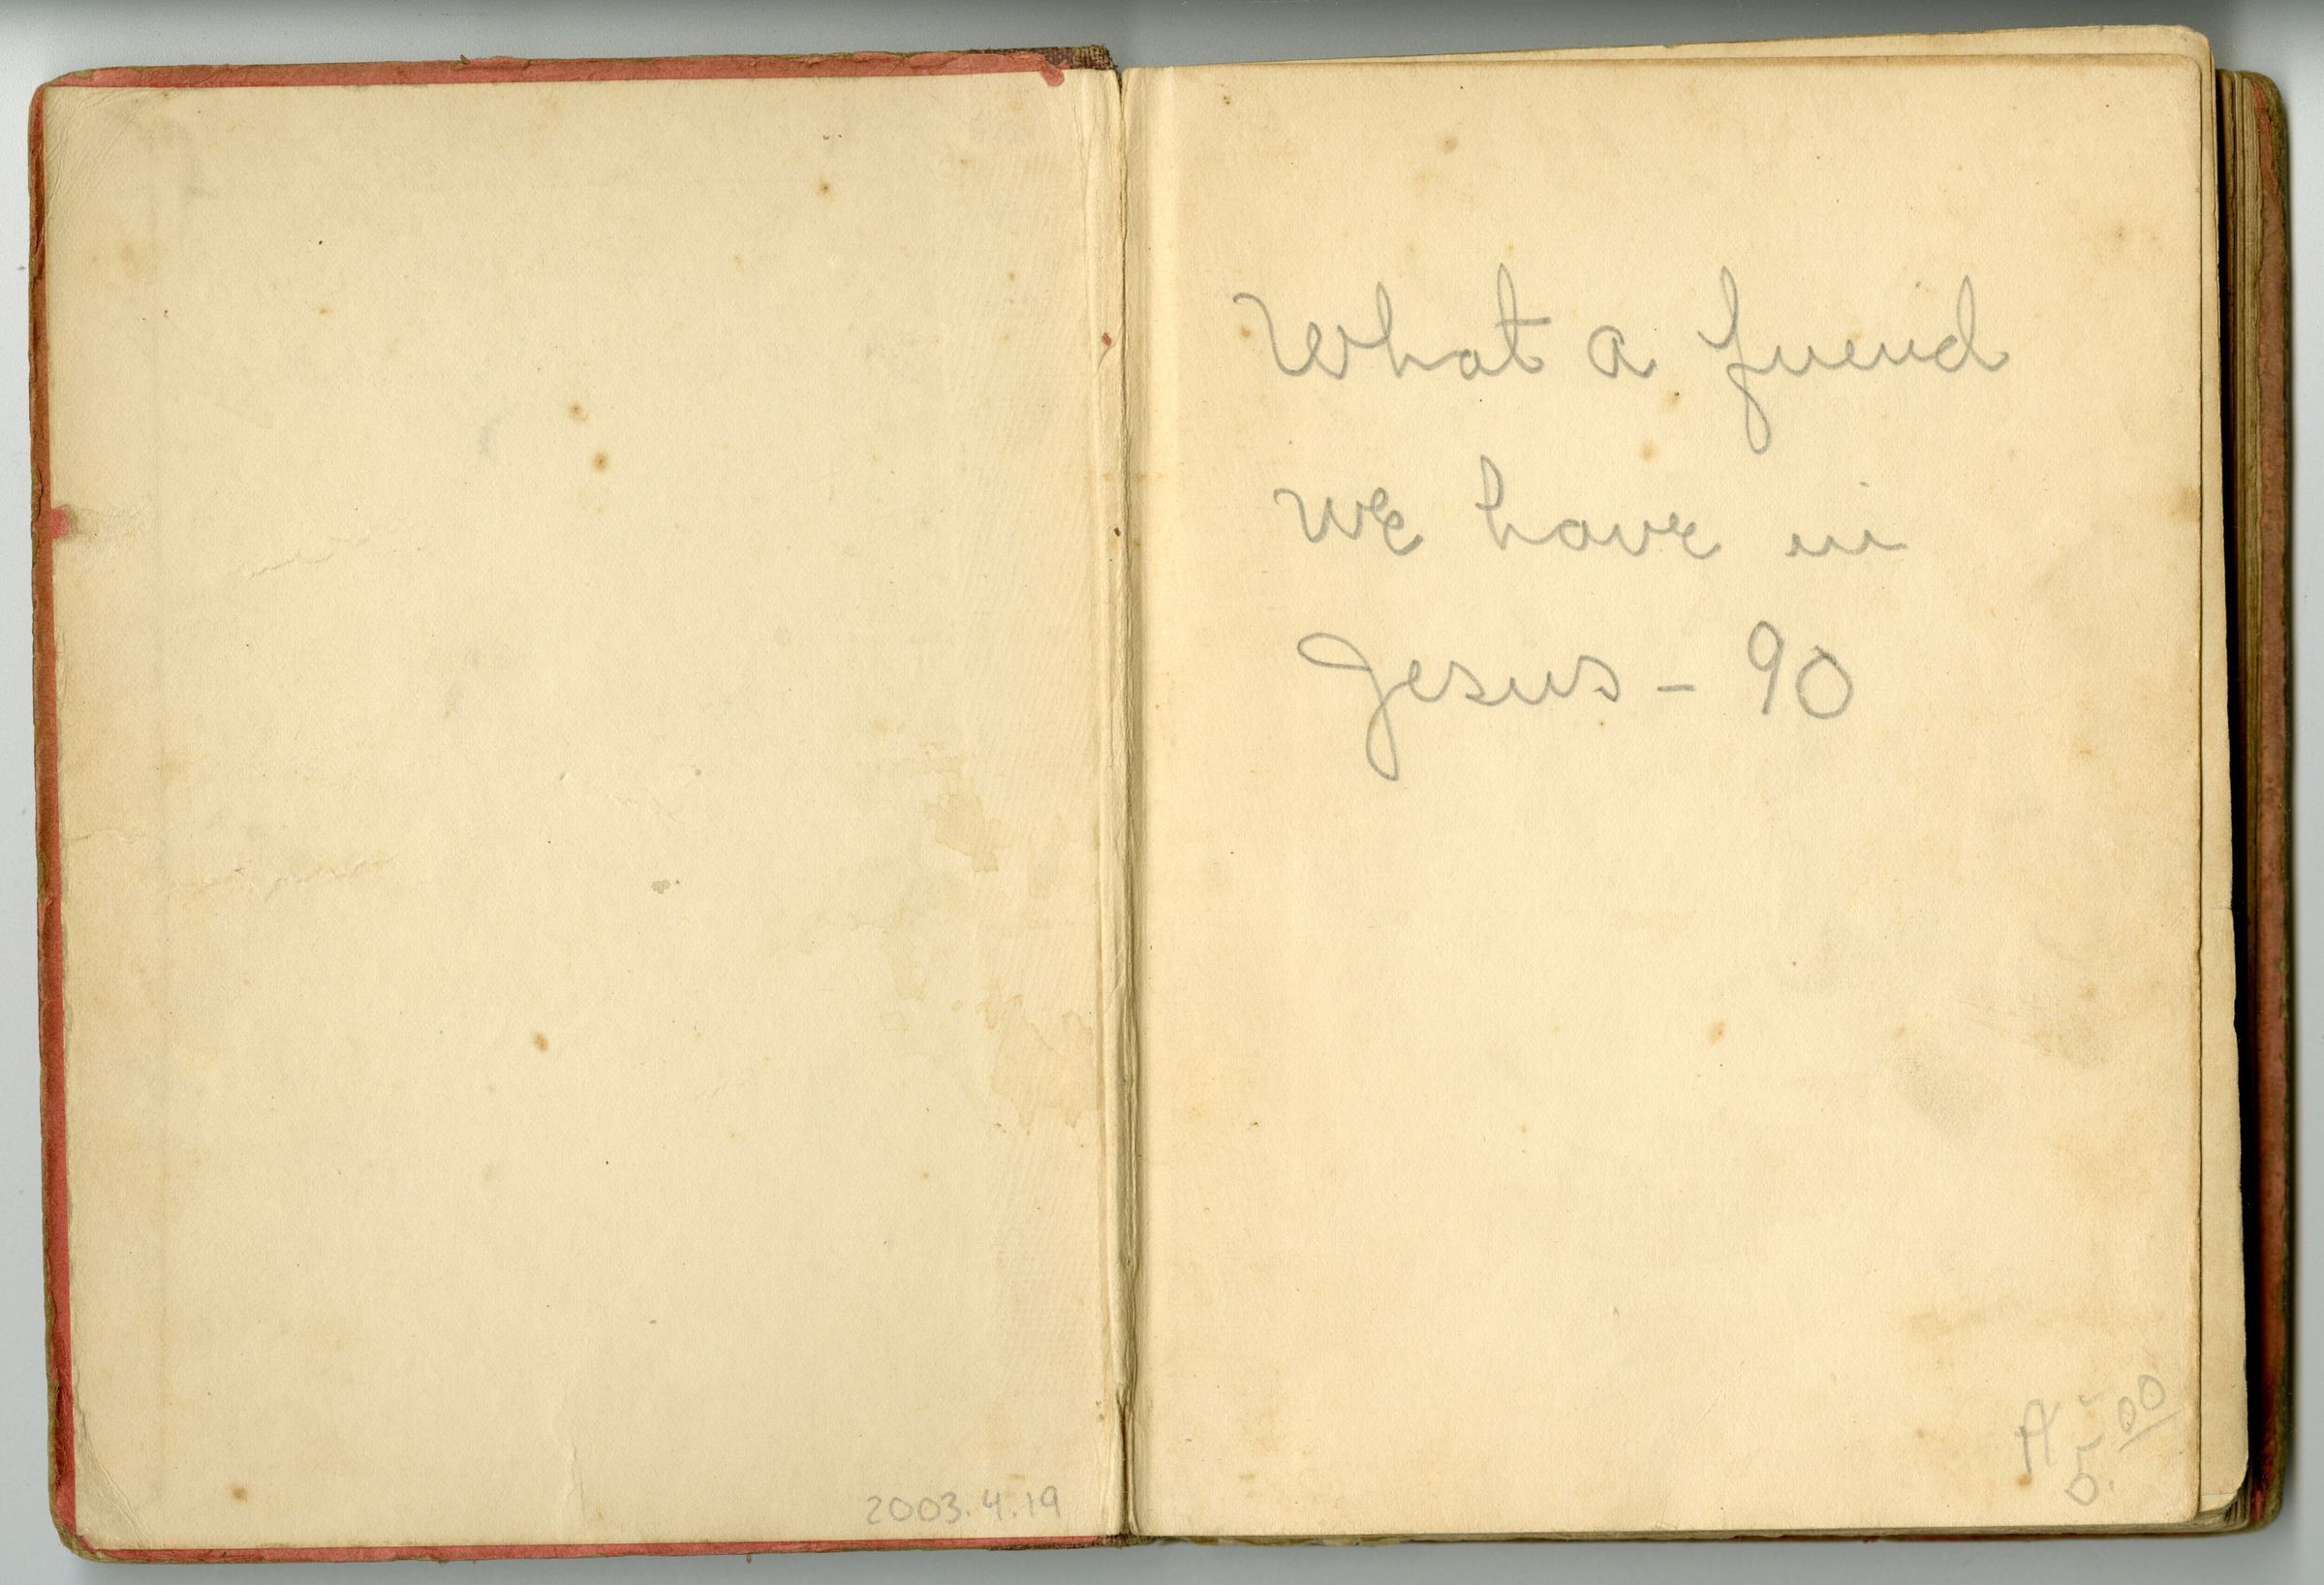 2003.4.19
What a friend
we have in
Jesus – 90
A
5.00